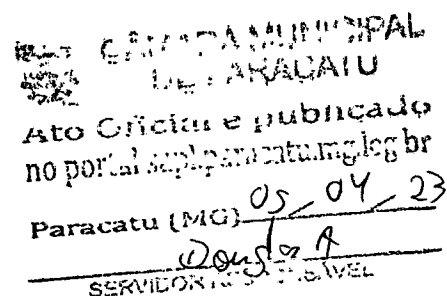 CÂMARA MUNICIPAL
DE PARACATU
Ato Oficial e publicado
no portal sapl.paracatu.mg.leg.br
Paracatu (MG) 05, 04, 23
Douglas A
SERVIDOR RESPONSÁVEL